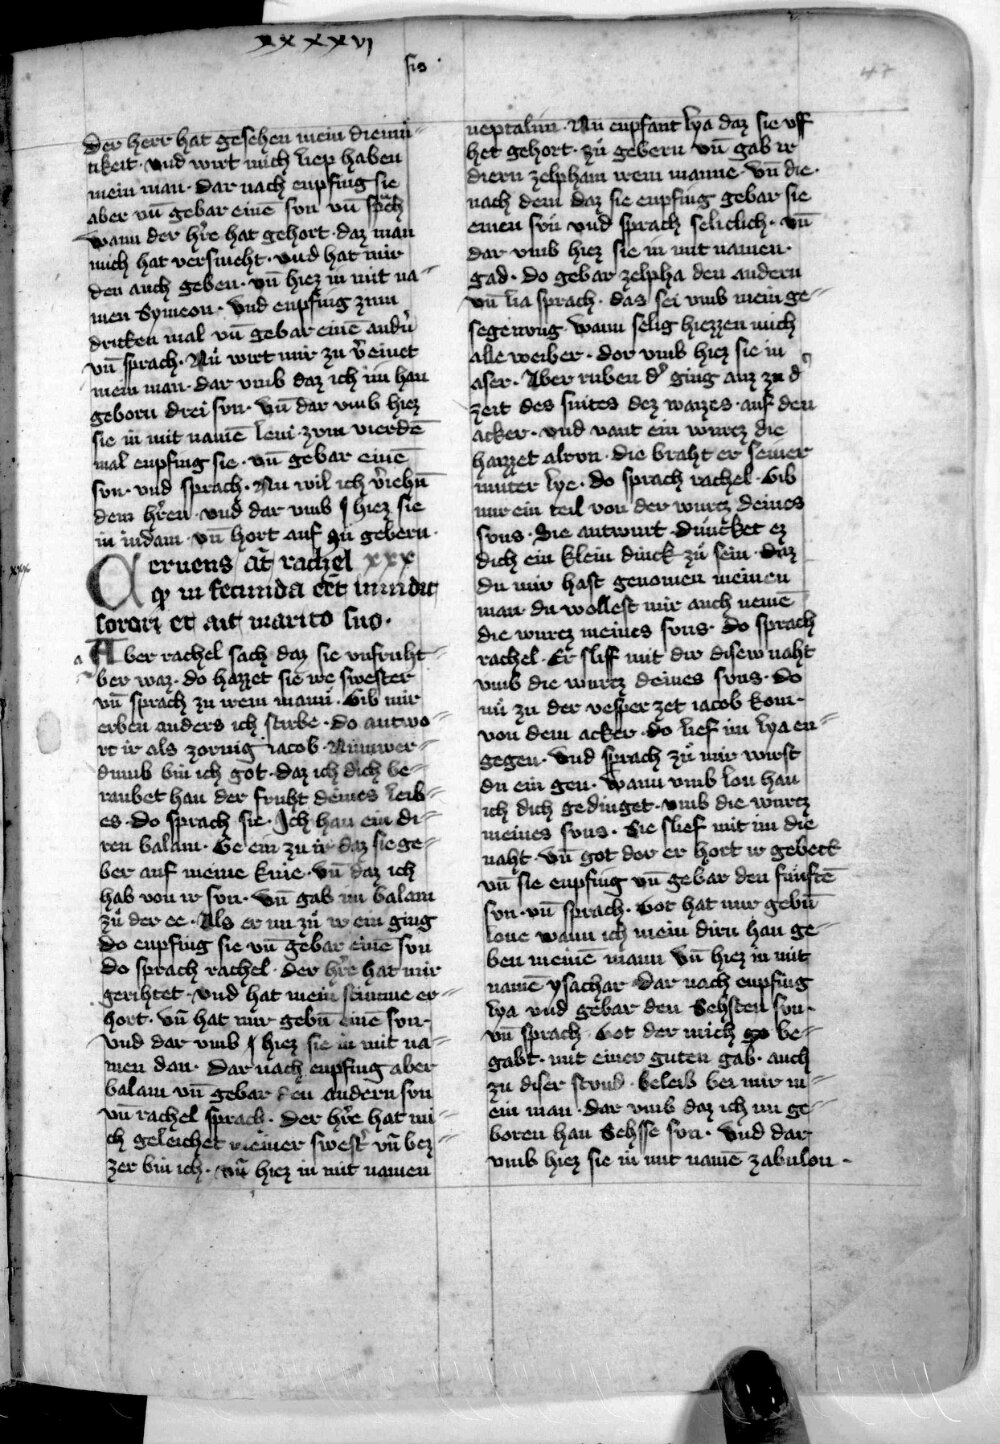 xxxxvi
sis
47
der herr hat gesehen mein diemu᷑=
tikeit · vnd wirt mich liep haben
mein man · dar nach enpfing sie
aber vn̄ gebar einē svn vn̄ sp̄ch
wann der hr̄e hat gehort · daz man
mich hat versmeht · vnd hat mir
den auch geben · vn̄ hiez in mit na=
men Symeon · vnd enpfing zum
dritten mal vn̄ gebar einē andn̄
vn̄ sprach · Nu wirt mir zu v̄einet
mein man · dar vmb daz ich im han
geborn drei svn · vn̄ dar vmb hiez
sie in mit namē leui · zvm vierdē
mal enpfing sie · vn̄ gebar einē
svn · vnd sprach · Nu wil ich v̄iehn̄
dem hr̄en · vnd dar vmb hiez sie
in iudam · vn̄ hort auf zu gebern ·
Cernens aūt rachel xxx
qͣ in fecunda eēt inuidit
sorori et ait marito suo ·
Aber rachel sach daz sie vnfruht=
ber waz · do hazzet sie ire swester
vn̄ sprach zu irem mann · Gib mir
erben anders ich stirbe · do antwo=
rt ir als zornig iacob · Nimwer=
dumb bin ich got · daz ich dich be=
raubet han der fruht deines leib=
es · do sprach sie · Ich han ein di=
ren balam · Ge ein zu ir daz sie ge=
ber auf meine knie · vn̄ daz ich
hab von ir svn · vn̄ gab im balam
zu der ee · Als er nu zu ir ein ging
do enpfing sie vn̄ gebar eine svn
do sprach rachel · der hr̄e hat mir
gerihtet · vnd hat mein stimme er=
hort · vn̄ hat mir gebn̄ einē svn ·
vnd dar vmb hiez sie in mit na=
men dan · Dar nach enpfing aber
balam vn̄ gebar den andern svn
vn̄ rachel sprach · Der hr̄e hat mi=
ch geleichet meiner swest᷑ vn̄ bez=
zer bin ich · vn̄ hiez in mit namen
neptalim · Nu enpfant lya daz sie vff
het gehort · zu gebern vn̄ gab ir
diern zelpham irem manne · vn̄ die ·
nach dem daz sie enpfing gebar sie
einen svn vnd sprach seliclich · vn̄
dar vmb hiez sie in mit namen ·
gad · do gebar zelpha den andern
vn̄ lia sprach · das sei vmb mein ge=
segenvng · wann selig hiezzen mich
alle weiber · dor vmb hiez sie in
aser · Aber ruben d᷑ ging auz zu d᷑
zeit des snites dez waizes · auf den
acker · vnd vant ein wurcz die
hazzet alron · die braht er seiner
muter lye · do sprach rachel · Gib
mir ein teil von der wurcz deines
svns · Sie antwurt · duncket ez
dich ein klein dinck zu sein · daz
du mir hast genomen meinen
man · du wollest mir auch nemē
die wurcz meines svns · do sprach
rachel · Er sliff mit dir disew naht
vmb die wurcz deines svns · do
nu zu der vesper zet iacob kom ·
von dem acker · do lief im lya en=
gegen · vnd sprach zu mir wirst
du ein gen · wann vmb lon han
ich dich gedinget · vmb die wurcz
meines svns · Sie slief mit im die
naht · vn̄ got dor er hort ir gebeck
vn̄ sie enpfing vn̄ gebar den funftē
svn · vn̄ sprach · Got hat mir gebn̄
lone wann ich mein dirn han ge=
ben meinē mann vn̄ hiez in mit
namē ysachar · Dar nach enpfing
lya vnd gebar den Sehsten svn ·
vn̄ sprach · Got der mich go be=
gabt · mit einer guten gab · auch
zu diser stvnd · beleib bei mir m=
ein man · dar vmb daz ich im ge=
boren han Sehsse svn · vnd dar
vmb hiez sie in mit namē zabulon ·